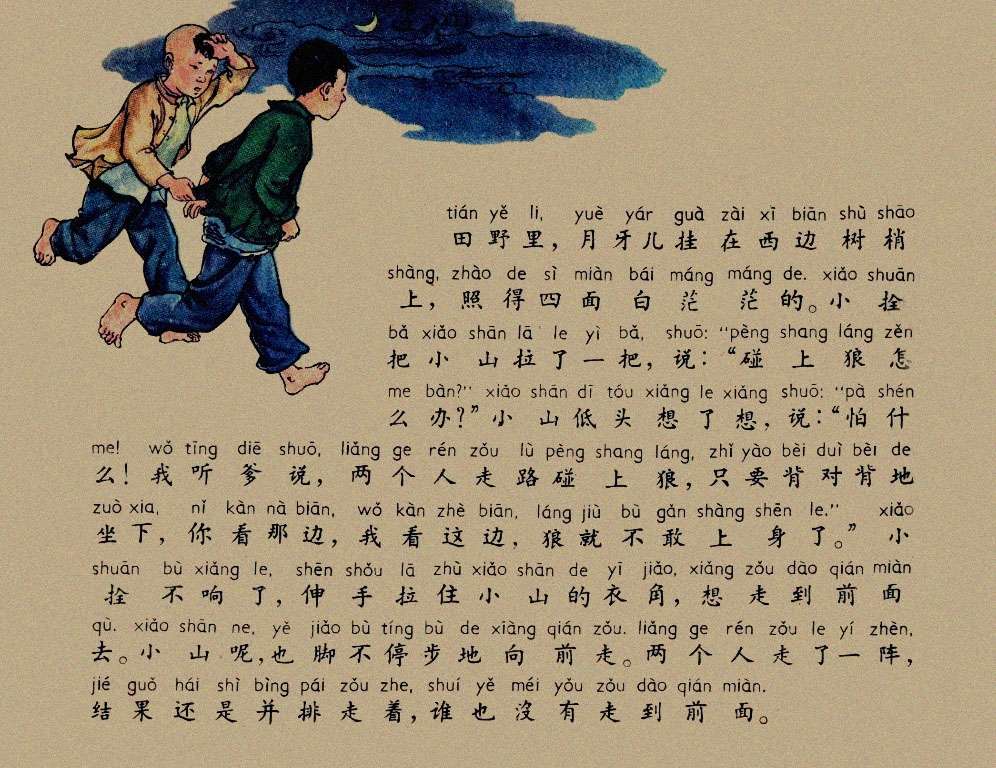 tián yě li, yuè yár guà zài xī biān shù shāo
田野里，月牙儿挂在西边树梢
shàng, zhào de sì miàn bái máng máng de. xiǎo shuān
上，照得四面白茫茫的。小拴
bǎ xiǎo shān lā le yì bǎ, shuō: "pèng shang láng zěn
把小山拉了一把，说：“碰上狼怎
me bàn?" xiǎo shān dī tóu xiǎng le xiǎng shuō: "pà shén
么办？”小山低头想了想，说：“怕什
me! wǒ tīng diē shuō, liǎng ge rén zǒu lù pèng shang láng, zhǐ yào bèi duì bèi de
么！我听爹说，两个人走路碰上狼，只要背对背地
zuò xia, nǐ kàn nà biān, wǒ kàn zhè biān, láng jiù bù gǎn shàng shēn le." xiǎo
坐下，你看那边，我看这边，狼就不敢上身了。”小
shuān bù xiǎng le, shēn shǒu lā zhù xiǎo shān de yī jiǎo, xiǎng zǒu dào qián miàn
拴不响了，伸手拉住小山的衣角，想走到前面
qù. xiǎo shān ne, yě jiǎo bù tíng bù de xiàng qián zǒu. liǎng ge rén zǒu le yí zhèn,
去。小山呢，也脚不停步地向前走。两个人走了一阵，
jié guǒ hái shì bìng pái zǒu zhe, shuí yě méi yǒu zǒu dào qián miàn.
结果还是并排走着，谁也沒有走到前面。